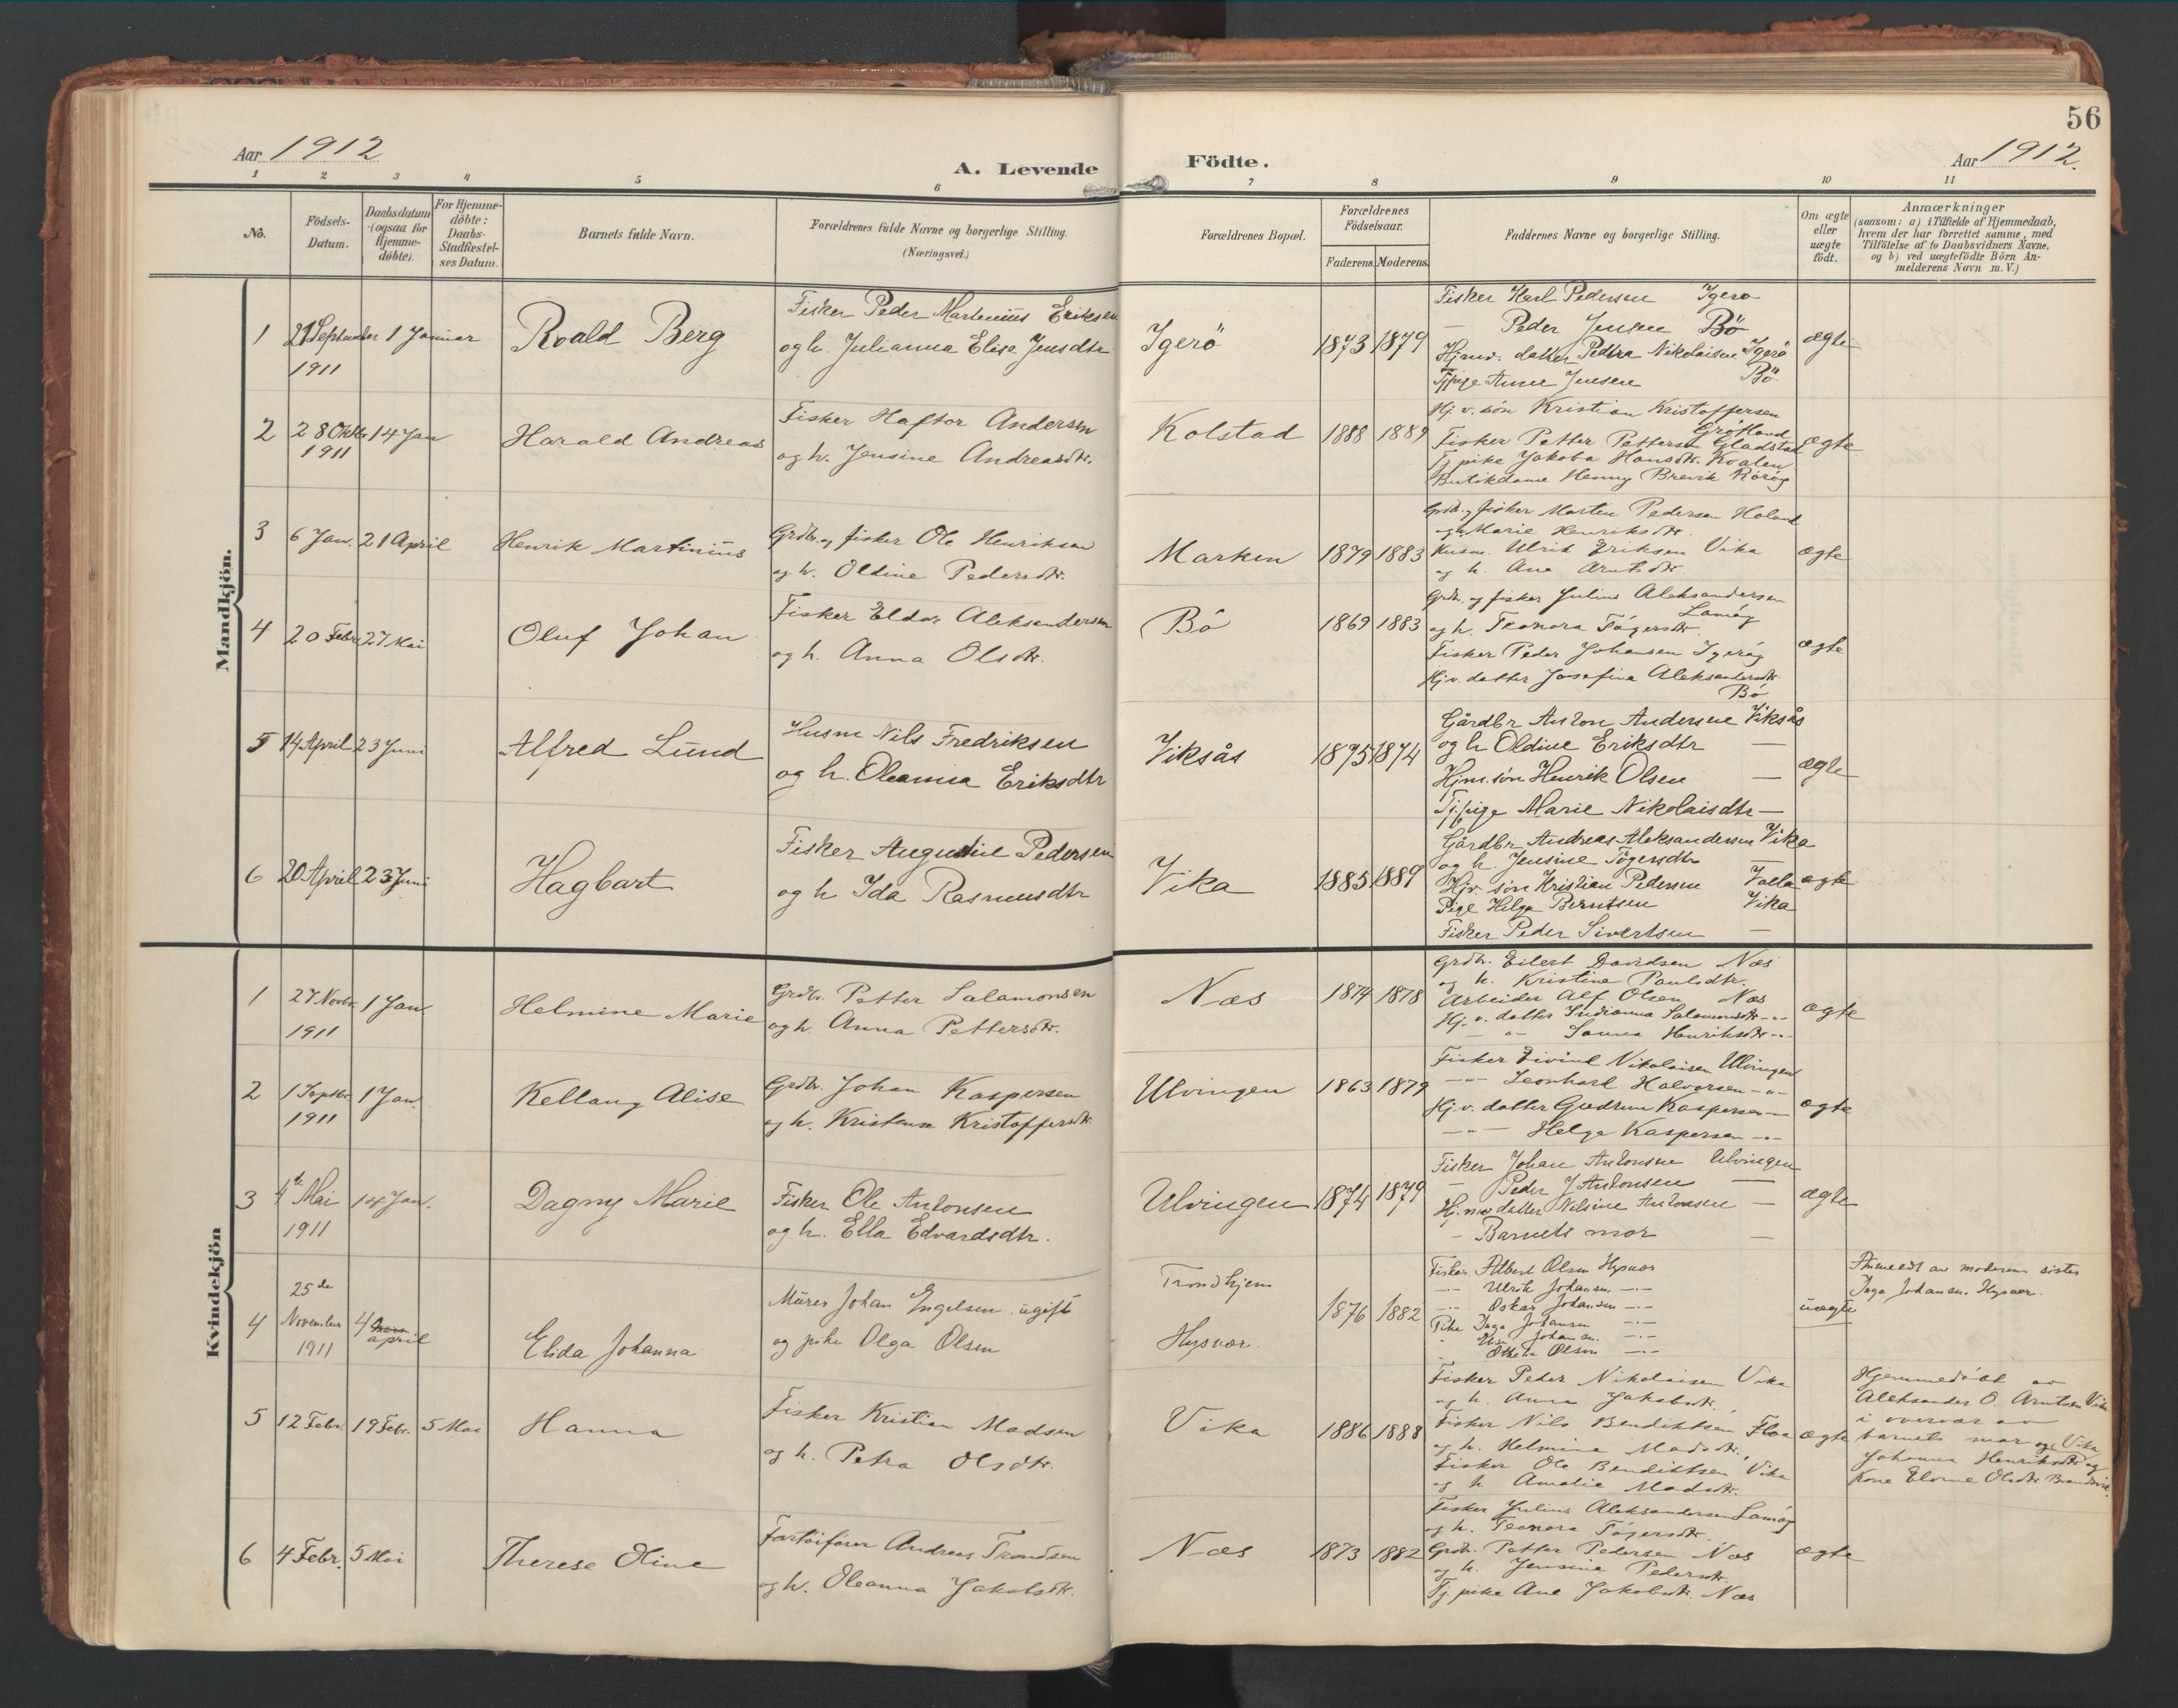 56
Aar 1912
A. Levende Födte.
Aar 1912.
1 2 3 4 5 6 7 8 9 10 11
No.
Födsels-Datum.
Daabsdatum (ogsaa for Hjemme-döbte).
For Hjemme-döbte: Daabs-Stadfæstel-ses Datum.
Barnets fulde Navn.
Forældrenes fulde Navne og borgerlige Stilling.
(Næringsvei.)
Forældrenes Bopæl.
Forældrenes Födselsaar.
Faderens. Moderens.
Faddernes Navne og borgerlige Stilling.
Om ægte eller uægte födt.
Anmærkninger
(saasom: a) i Tilfælde af Hjemmedaab,
hvem der har forrettet samme, med
Tilföielse af to Daabsvidners Navne,
og b) ved uægtefödte Börn An-
melderens Navn m. V.)
Mandkjön.
1 21 September 1911 1 Januar Roald Berg
Fisker Peder Martenius Eriksen
og h. Julianna Elise Jensdtr
Igerö 1873 1879
Fisker Karl Pedersen Igerø
— Peder Jensen Bö
datter Petra Nikolaisen Igerö
Tjpige Anne Jensen Bö
ægte
2 28 Oktbr 1911 14 Jan Harald Andreas
Fisker Haftor Andersen
og h. Jensine Andreasdtr.
Kolstad 1888 1889
Hj. v. sön Kristian Kristoffersen
Gröfland
Fisker Petter Pettersen Gladstad
Tj pike Jakoba Hansdtr. Kvalen
Butikdame Henny Brevik Rörøy
ægte
3 6 Jan. 21 April Henrik Martinius
Grdbr. og fisker Ole Henriksen
og h. Oldine Pedersdtr.
Marken 1879 1883
Grdb. og fisker Morten Pedersen Holand
og h. Marie Henriksdtr.
Husm. Ulrik Eriksen Vika
og h. Ane Arntsdtr.
ægte
4 20 Febr 27 Mai Oluf Johan
Fisker Eldor Aleksandersen
og h. Anna Olsdtr.
Bö 1869 1883
Grdb. og fisker Julius Aleksandersen
Lamøy
og h. Teonora Tögersdtr.
Fisker Peder Johansen Igerøy
Hj.v. datter Josefine Aleksandersdtr.
Bö
ægte
5 14 April 23 Juni Alfred Lund
Husm Nils Fredriksen
og h. Oleanna Eriksdtr
Viksås 1875 1874
Gårdbr Anton Andersen Viksås
og h Oldine Eriksdtr —
Hjm. sön Henrik Olsen —
Tj.pige Marie Nikolaisdtr —
ægte
6 20 April 23 Juni Hagbart
Fisker Augustine Pedersen
og h Ida Rasmusdtr
Vika 1885 1889
Gårdbr Andreas Aleksandersen Vika
og h. Jensine Tögersdtr —
Hjv sön Kristian Pedersen Valla
Pige Helga Berntsen Vika
Fisker Peder Sivertsen —
ægte
Kvindekjön
1 27 Novbr. 1911 1 Jan. Helmine Marie
Grdbr. Petter Salamonsen
og h. Anna Pettersdtr.
Næs 1874 1878
Grdbr. Eilert Davidsen Næs
og h. Kristine Paulsdtr.
Arbeider Alf Olsen Næs
Hj. v. datter Indianna Salamonsdtr. -"-
— " — Sanna Henriksdtr. -"-
ægte
2 1 Septbr. 1911 1 Jan. Kellaug Alise
Grdbr. Johan Kaspersen
og h. Kristense Kristoffersdtr.
Ulvingen 1863 1879
Fisker Eivind Nikolaisen Ulvingen
—"— Leonhard Halvorsen -"-
Hj.v. datter Gudrun Kaspersen -"-
—"— Helga Kaspersen -"-
ægte
3 4de Mai 1911 14 Jan. Dagny Marie
Fisker Ole Antonsen
og h. Ella Edvardsdtr.
Ulvingen 1874 1879
Fisker Johan Antonsen Ulvingen
— Peder J Antonsen —
datter Nilsine Antonsen —
— Barnets mor —
ægte
4 25de November 1911 4 april Elida Johanna
Murer Johan Engelsen ugift
og pike Olga Olsen
Trondhjem
Hysvær. 1876 1882
Fisker Albert Olsen Hysvær
—"— Ulrik Johansen —"—
—"— Oskar Johansen —"—
Pike Inga Johansen —"—
" Johansen. —"—
" Olsen —"—
uægte
Anmeldt av moderens søster
Inga Johansen. Hysvær.
5 12 Febr. 19 Febr. 5 Mai Hanna
Fisker Kristian Madsen
og h. Petra Olsdtr.
Vika 1886 1888
Fisker Peder Nikolaisen Vika
og h. Anna Jakobsdtr.
Fisker Nils Bendiktsen Floa
og h. Helmine Madsdtr.
Fisker Ole Bendiktsen Vika
og h Amalie Madsdtr.
ægte
Hjemmedöbt av
Aleksander O. Arntsen Vika
i overvær av
barnets mor og Vika
Johanna Henriksdtr. og
Kone Elorne Olsdtr.
6 4 Febr. 5 Mai Therese Oline
Fartöiförer Andreas Trondsen
og h. Oleanna Jakobsdtr.
Næs 1873 1882
Fisker Julius Aleksandersen Lamøy
og h. Teonora Tögersdtr.
Grdbr. Petter Pedersen Næs
og h. Jensine Pedersdtr.
Tj pike Ane Jakobsdtr. Næs
ægte